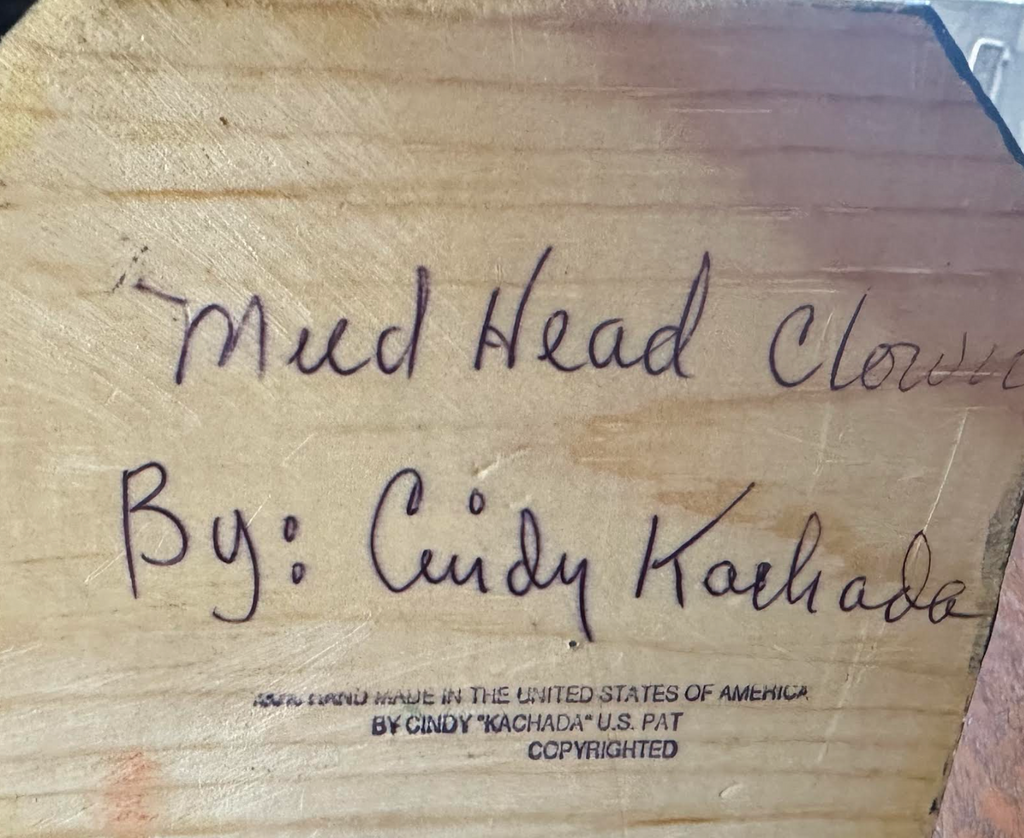 Mud Head Clown
By: Cindy Kachada
100% HAND MADE IN THE UNITED STATES OF AMERICA
BY CINDY "KACHADA" U.S. PAT
COPYRIGHTED